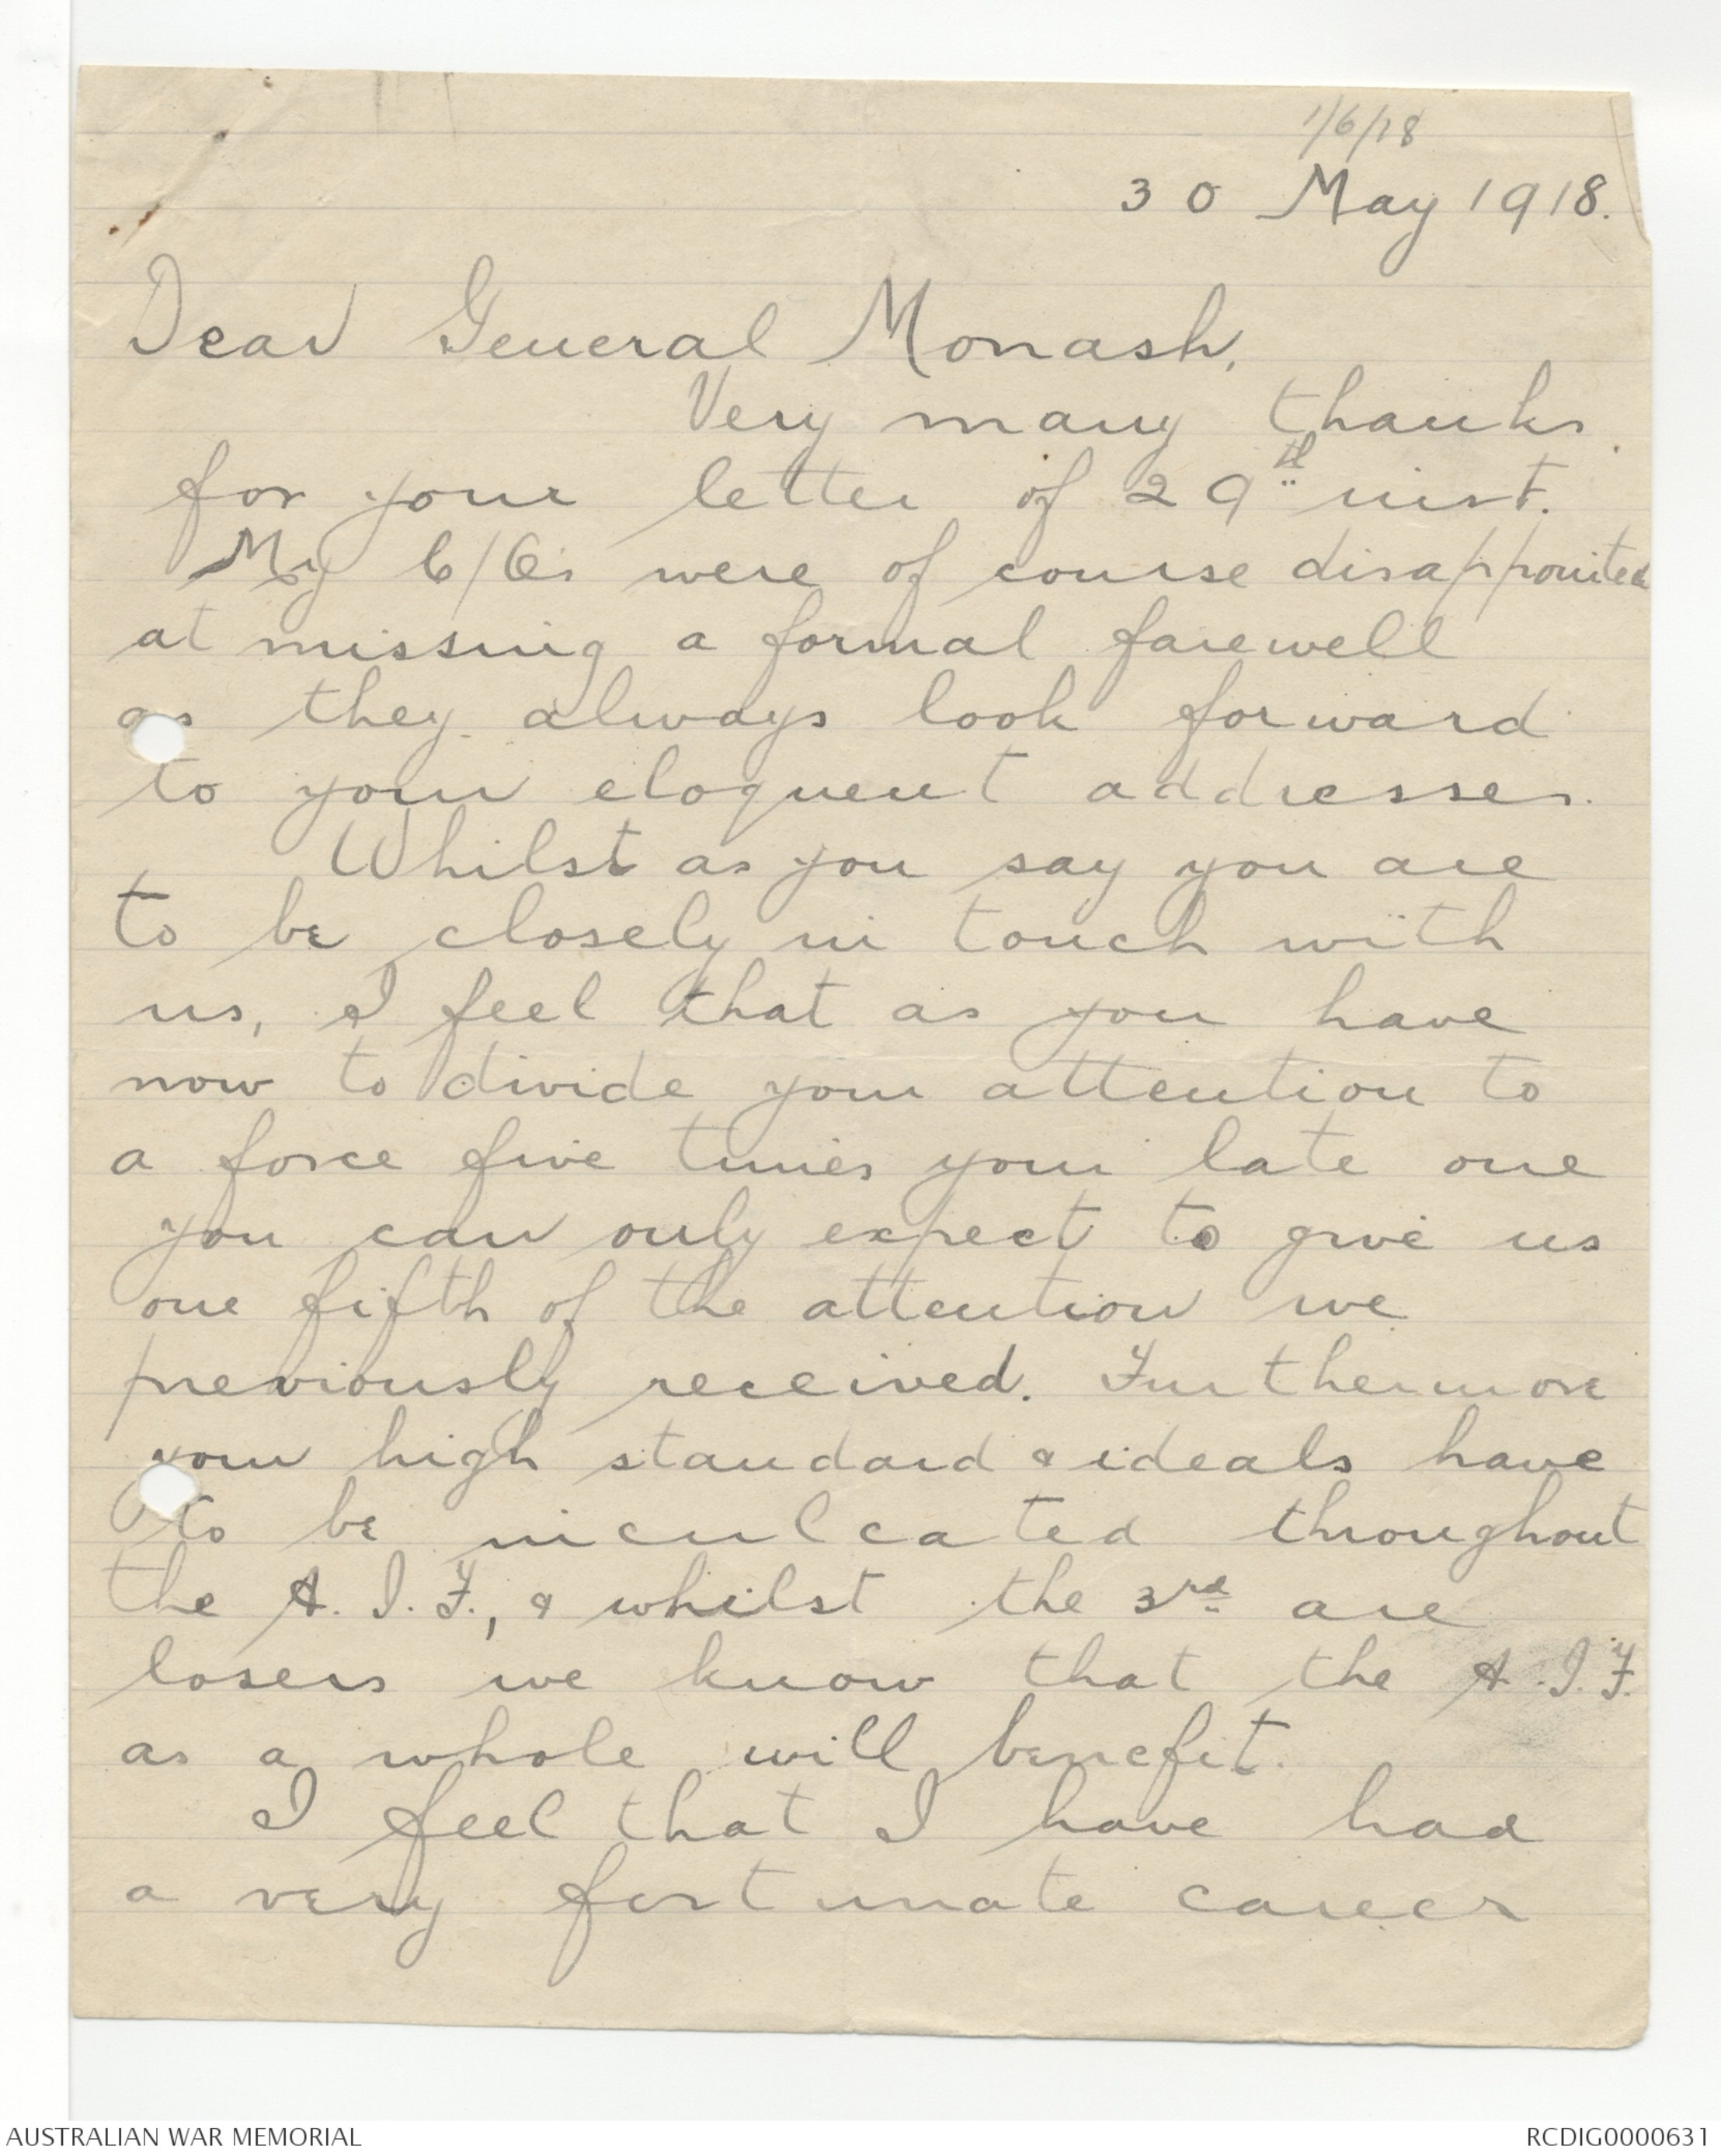 1/6/18
30 May 1918.
Dear General Monash,
Very many thanks
for your letter of 29th inst.
My C/O's were of course disappointed
at missing a formal farewell
as they always look forward
to your eloquent addresses.
Whilst as you say you are
to be closely in touch with
us, I feel that as you have
now to divide your attention to
a force five times your late one
you can only expect to give us
one fifth of the attention we
previously received. Furthermore
your high standard & ideals have
to be inculcated throughout
the A.I.F., & whilst the 3rd are
losers we know that the A.I.F.
as a whole will benefit.
I feel that I have had
a very fortunate career
AUSTRALIAN WAR MEMORIAL
RCDIG0000631